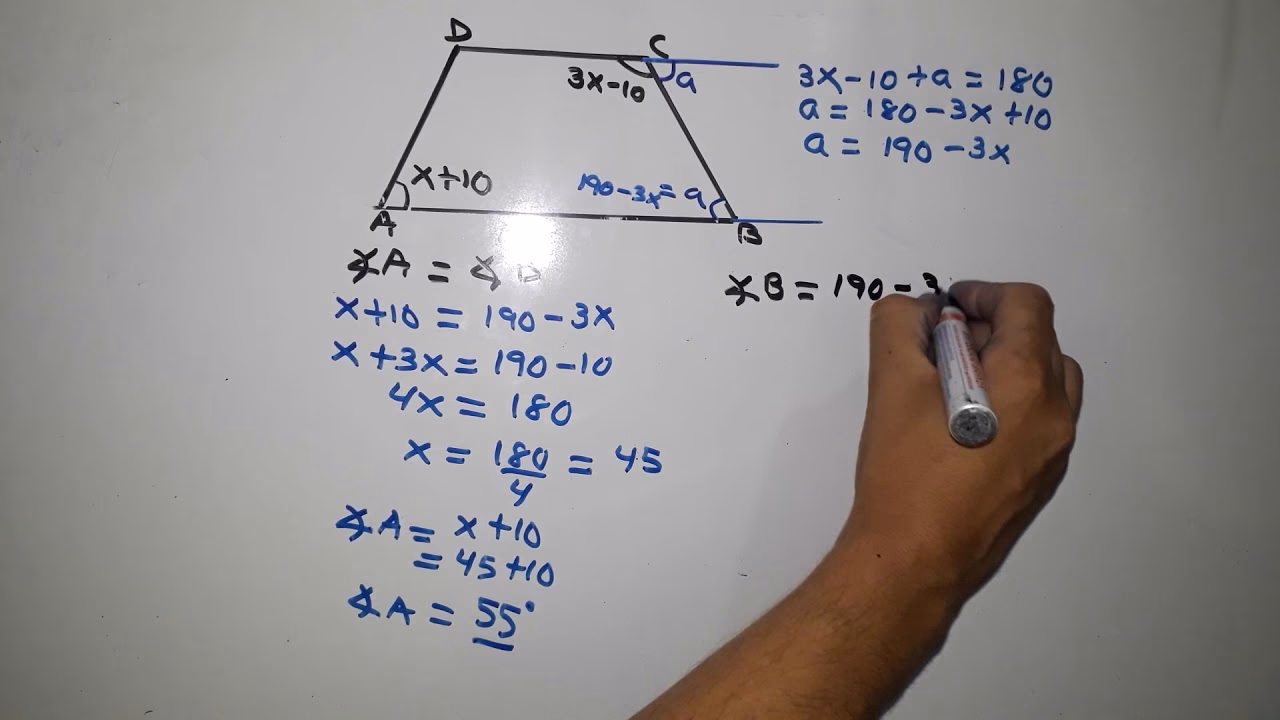 D
C
3x-10
a
3x-10+a=180
a=180-3x+10
a=190-3x
x+10
190-3x=a
A
B
∡A=∡
∡B=190-3
x+10=190-3x
x+3x=190-10
4x=180
x=180/4=45
∡A=x+10
=45+10
∡A=55°